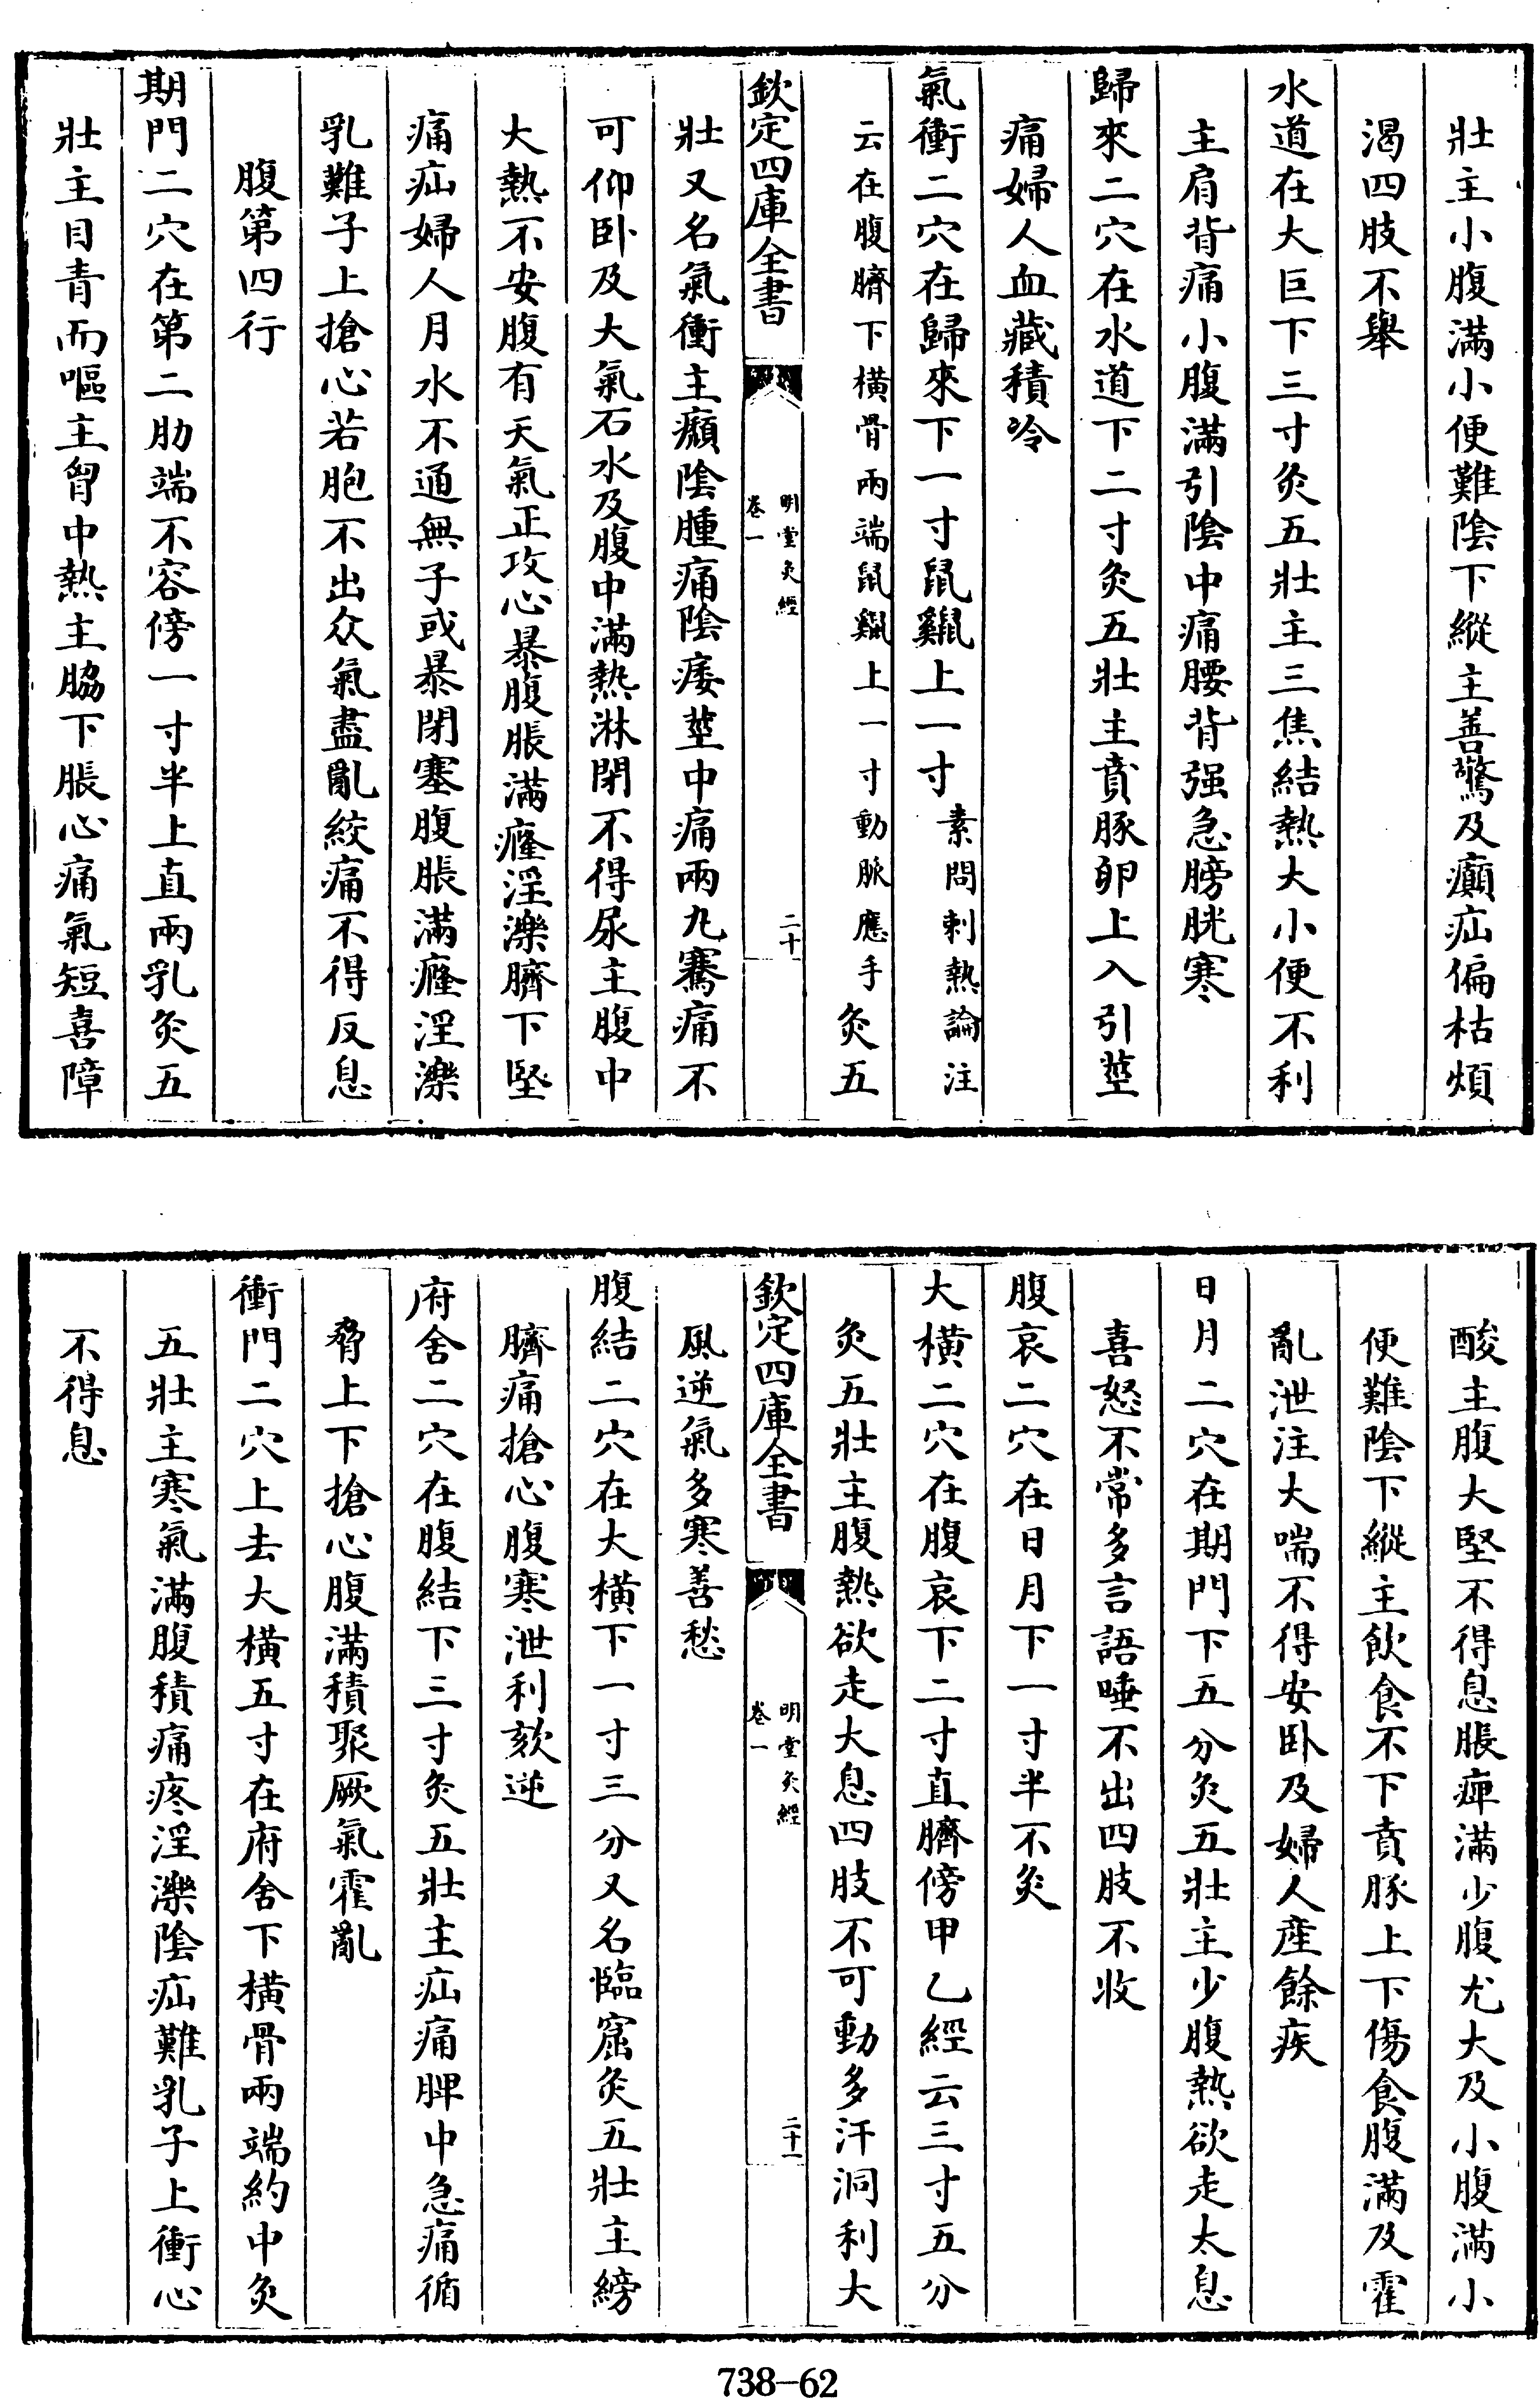 壯主小腹滿小便難陰下縱主善驚及癲疝偏枯煩
渴四肢不舉
水道在大巨下三寸灸五壯主三焦結熱大小便不利
主肩背痛小腹滿引陰中痛腰背强急膀胱寒
歸來二穴在水道下二寸灸五壯主賁豚卵上入引莖
痛婦人血藏積冷
氣衝二穴在歸來下一寸鼠鼷上一寸素問刺熱論注
云在腹臍下橫骨兩端鼠鼷上一寸動脈應手灸五
欽定四庫全書
明堂灸經
卷一
二十
壯又名氣衝主癩陰腫痛陰痿莖中痛兩丸騫痛不
可仰卧及大氣石水及腹中滿熱淋閉不得尿主腹中
大熱不安腹有天氣正攻心暴腹脹滿癃淫濼臍下堅
痛疝婦人月水不通無子或暴閉塞腹脹滿癃淫濼
乳難子上搶心若胞不出众氣盡亂絞痛不得反息
腹第四行
期門二穴在第二肋端不容傍一寸半上直兩乳灸五
壯主目青而嘔主胷中熱主脇下脹心痛氣短喜障
酸主腹大堅不得息脹痺滿少腹尤大及小腹滿小
便難陰下縱主飲食不下賁豚上下傷食腹滿及霍
亂泄注大喘不得安卧及婦人産餘疾
日月二穴在期門下五分灸五壯主少腹熱欲走太息
喜怒不常多言語唾不出四肢不收
腹哀二穴在日月下一寸半不灸
大橫二穴在腹哀下二寸直臍傍甲乙經云三寸五分
灸五壯主腹熱欲走大息四肢不可動多汗洞利大
欽定四庫全書
明堂灸經
卷一
二十一
風逆氣多寒善愁
腹結二穴在大橫下一寸三分又名臨窟灸五壯主繞
臍痛搶心腹寒泄利欬逆
府舍二穴在腹結下三寸灸五壯主疝痛脾中急痛循
脅上下搶心腹滿積聚厥氣霍亂
衝門二穴上去大橫五寸在府舍下橫骨兩端約中灸
五壯主寒氣滿腹積痛疼淫濼陰疝難乳子上衝心
不得息
738-62